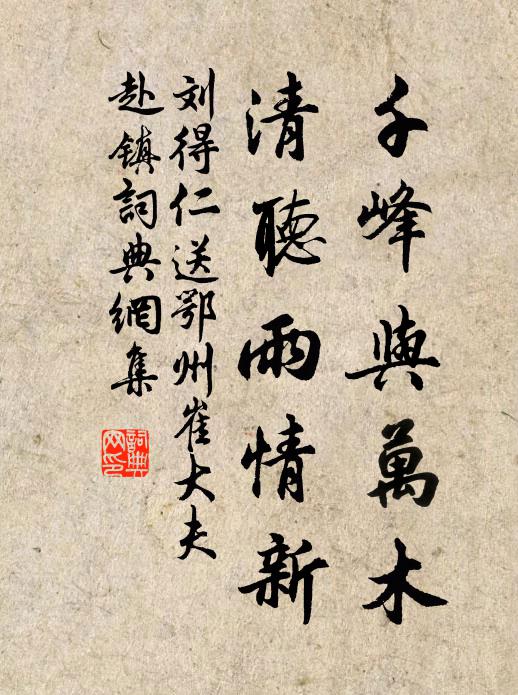 千峰與萬木
清聽雨情新
刘得仁送鄂州崔大夫
赴镇詞典網集
詞典网印